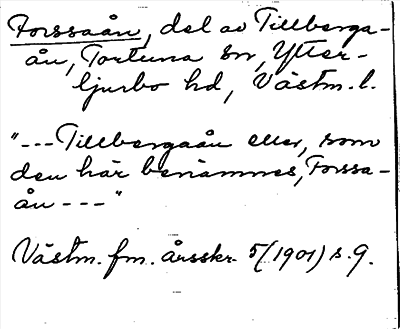 Forssaån, del av Tillberga-
ån, Tortuna sn, Ytter-
tjurbo hd, Västm. l.
"---Tillbergaån eller, som
den här benämnes, Forssa-
ån ---"
Västm. fm. årsskr. 5 (1901) s. 9.